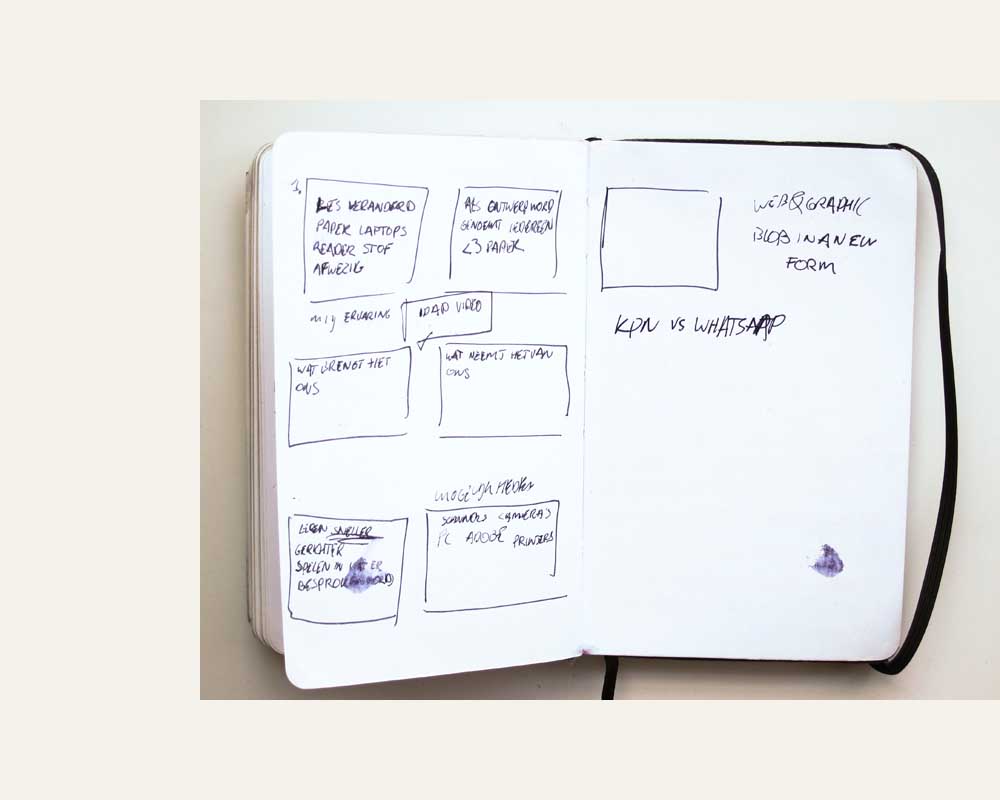 1.
LES VERANDERD
PAPER LAPTOPS
READER STOF
AFWEZIG
ALS ONTWERP WORD
GENOEMT IEDEREEN
<3 PAPER
mijn ERVARING
IPAD VIDEO
WAT BRENGT HET
ONS
WAT NEEMT HET VAN
ONS
LEREN SNELLER
GERICHTER
SPELEN IN WAT ER
BESPROKEN WORD
MOGELIJKHEDEN
SCANNERS CAMERA'S
PC ADOBE PRINTERS
WEB & GRAPHIC
BLOB IN A NEW
FORM
KPN VS WHATSAPP